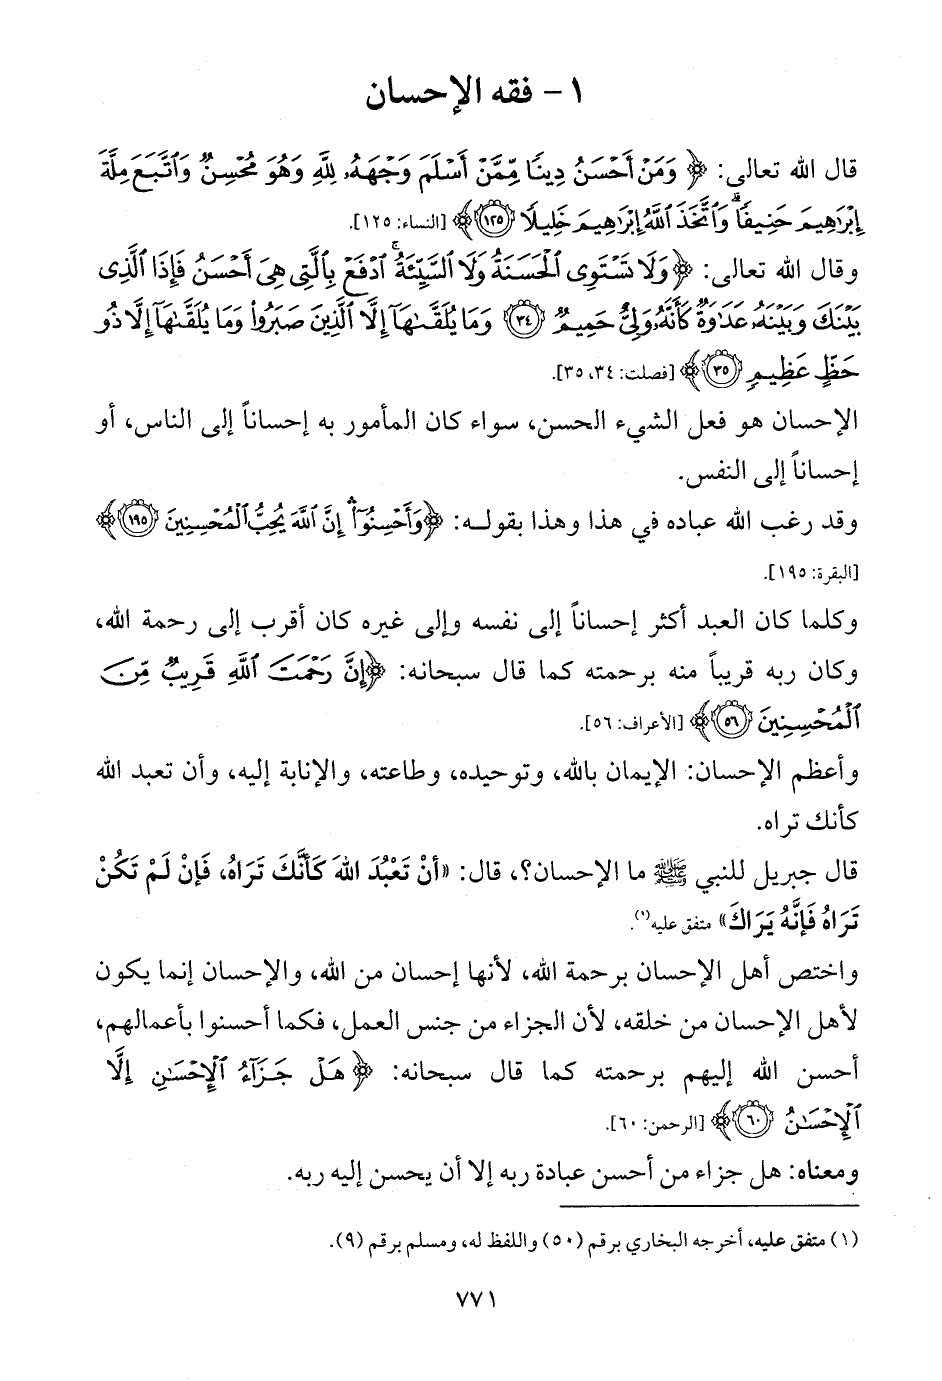 ١ - فقه الإحسان
قال الله تعالى: ﴿ وَمَنْ أَحْسَنُ دِينًا مِّمَّنْ أَسْلَمَ وَجْهَهُۥ لِلَّهِ وَهُوَ مُحْسِنٌ وَٱتَّبَعَ مِلَّةَ
إِبْرَٰهِيمَ حَنِيفًا ۗ وَٱتَّخَذَ ٱللَّهُ إِبْرَٰهِيمَ خَلِيلًا ١٢٥ ﴾ [النساء: ١٢٥].
وقال الله تعالى: ﴿ وَلَا تَسْتَوِى ٱلْحَسَنَةُ وَلَا ٱلسَّيِّئَةُ ۚ ٱدْفَعْ بِٱلَّتِى هِىَ أَحْسَنُ فَإِذَا ٱلَّذِى
بَيْنَكَ وَبَيْنَهُۥ عَدَٰوَةٌ كَأَنَّهُۥ وَلِىٌّ حَمِيمٌ ٣٤ وَمَا يُلَقَّىٰهَآ إِلَّا ٱلَّذِينَ صَبَرُوا۟ وَمَا يُلَقَّىٰهَآ إِلَّا ذُو
حَظٍّ عَظِيمٍ ٣٥ ﴾ [فصلت: ٣٤، ٣٥].
الإحسان هو فعل الشيء الحسن، سواء كان المأمور به إحساناً إلى الناس، أو
إحساناً إلى النفس.
وقد رغب الله عباده في هذا وهذا بقوله: ﴿ وَأَحْسِنُوٓا۟ ۛ إِنَّ ٱللَّهَ يُحِبُّ ٱلْمُحْسِنِينَ ١٩٥ ﴾
[البقرة: ١٩٥].
وكلما كان العبد أكثر إحساناً إلى نفسه وإلى غيره كان أقرب إلى رحمة الله،
وكان ربه قريباً منه برحمته كما قال سبحانه: ﴿ إِنَّ رَحْمَتَ ٱللَّهِ قَرِيبٌ مِّنَ
ٱلْمُحْسِنِينَ ٥٦ ﴾ [الأعراف: ٥٦].
وأعظم الإحسان: الإيمان بالله، وتوحيده، وطاعته، والإنابة إليه، وأن تعبد الله
كأنك تراه.
قال جبريل للنبي ﷺ ما الإحسان؟، قال: «أَنْ تَعْبُدَ اللهَ كَأَنَّكَ تَرَاهُ، فَإِنْ لَمْ تَكُنْ
تَرَاهُ فَإِنَّهُ يَرَاكَ» متفق عليه(١).
واختص أهل الإحسان برحمة الله، لأنها إحسان من الله، والإحسان إنما يكون
لأهل الإحسان من خلقه، لأن الجزاء من جنس العمل، فكما أحسنوا بأعمالهم،
أحسن الله إليهم برحمته كما قال سبحانه: ﴿ هَلْ جَزَآءُ ٱلْإِحْسَٰنِ إِلَّا
ٱلْإِحْسَٰنُ ٦٠ ﴾ [الرحمن: ٦٠].
ومعناه: هل جزاء من أحسن عبادة ربه إلا أن يحسن إليه ربه.
(١) متفق عليه، أخرجه البخاري برقم (٥٠) واللفظ له، ومسلم برقم (٩).
٧٧١